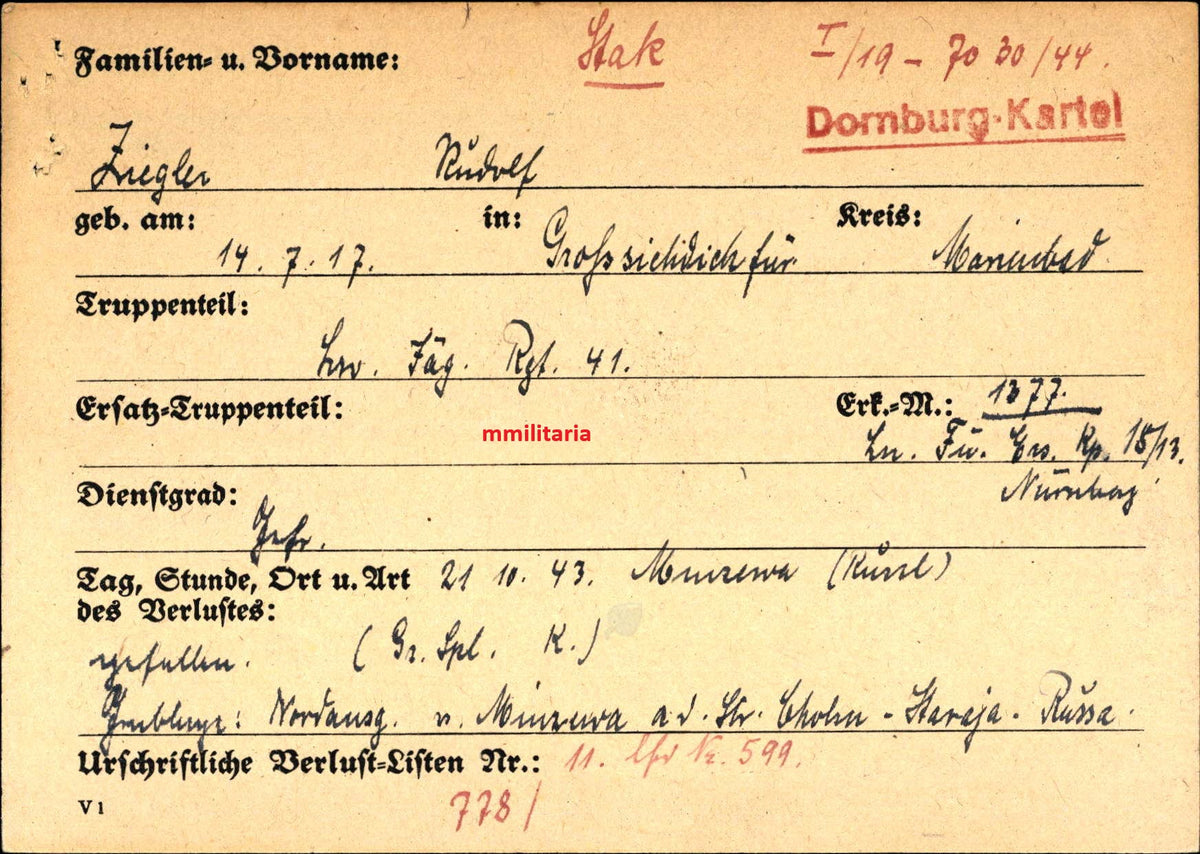 Familien- u. Vorname: Stak I/19 - 70 30/44.
Dornburg-Kartei
Ziegler Rudolf
geb. am: in: Kreis:
14. 7. 17. Grosssichdichfür Marienbad
Truppenteil:
Lw. Jäg. Rgt. 41.
Ersatz-Truppenteil: Erk.-M.: 1377.
mmilitaria
Ln. Fu. Ers. Kp. 15/13.
Dienstgrad: Nürnberg
Gefr.
Tag, Stunde, Ort u. Art 21 10. 43. Minzewa (Russl)
des Verlustes:
gefallen. (Gr. Spl. K.)
Grablage: Nordausg. v. Minzewa a. d. Str. Cholm - Staraja - Russa.
Urschriftliche Verlust-Listen Nr.: 11. lfd Nr. 599.
V 1 778/